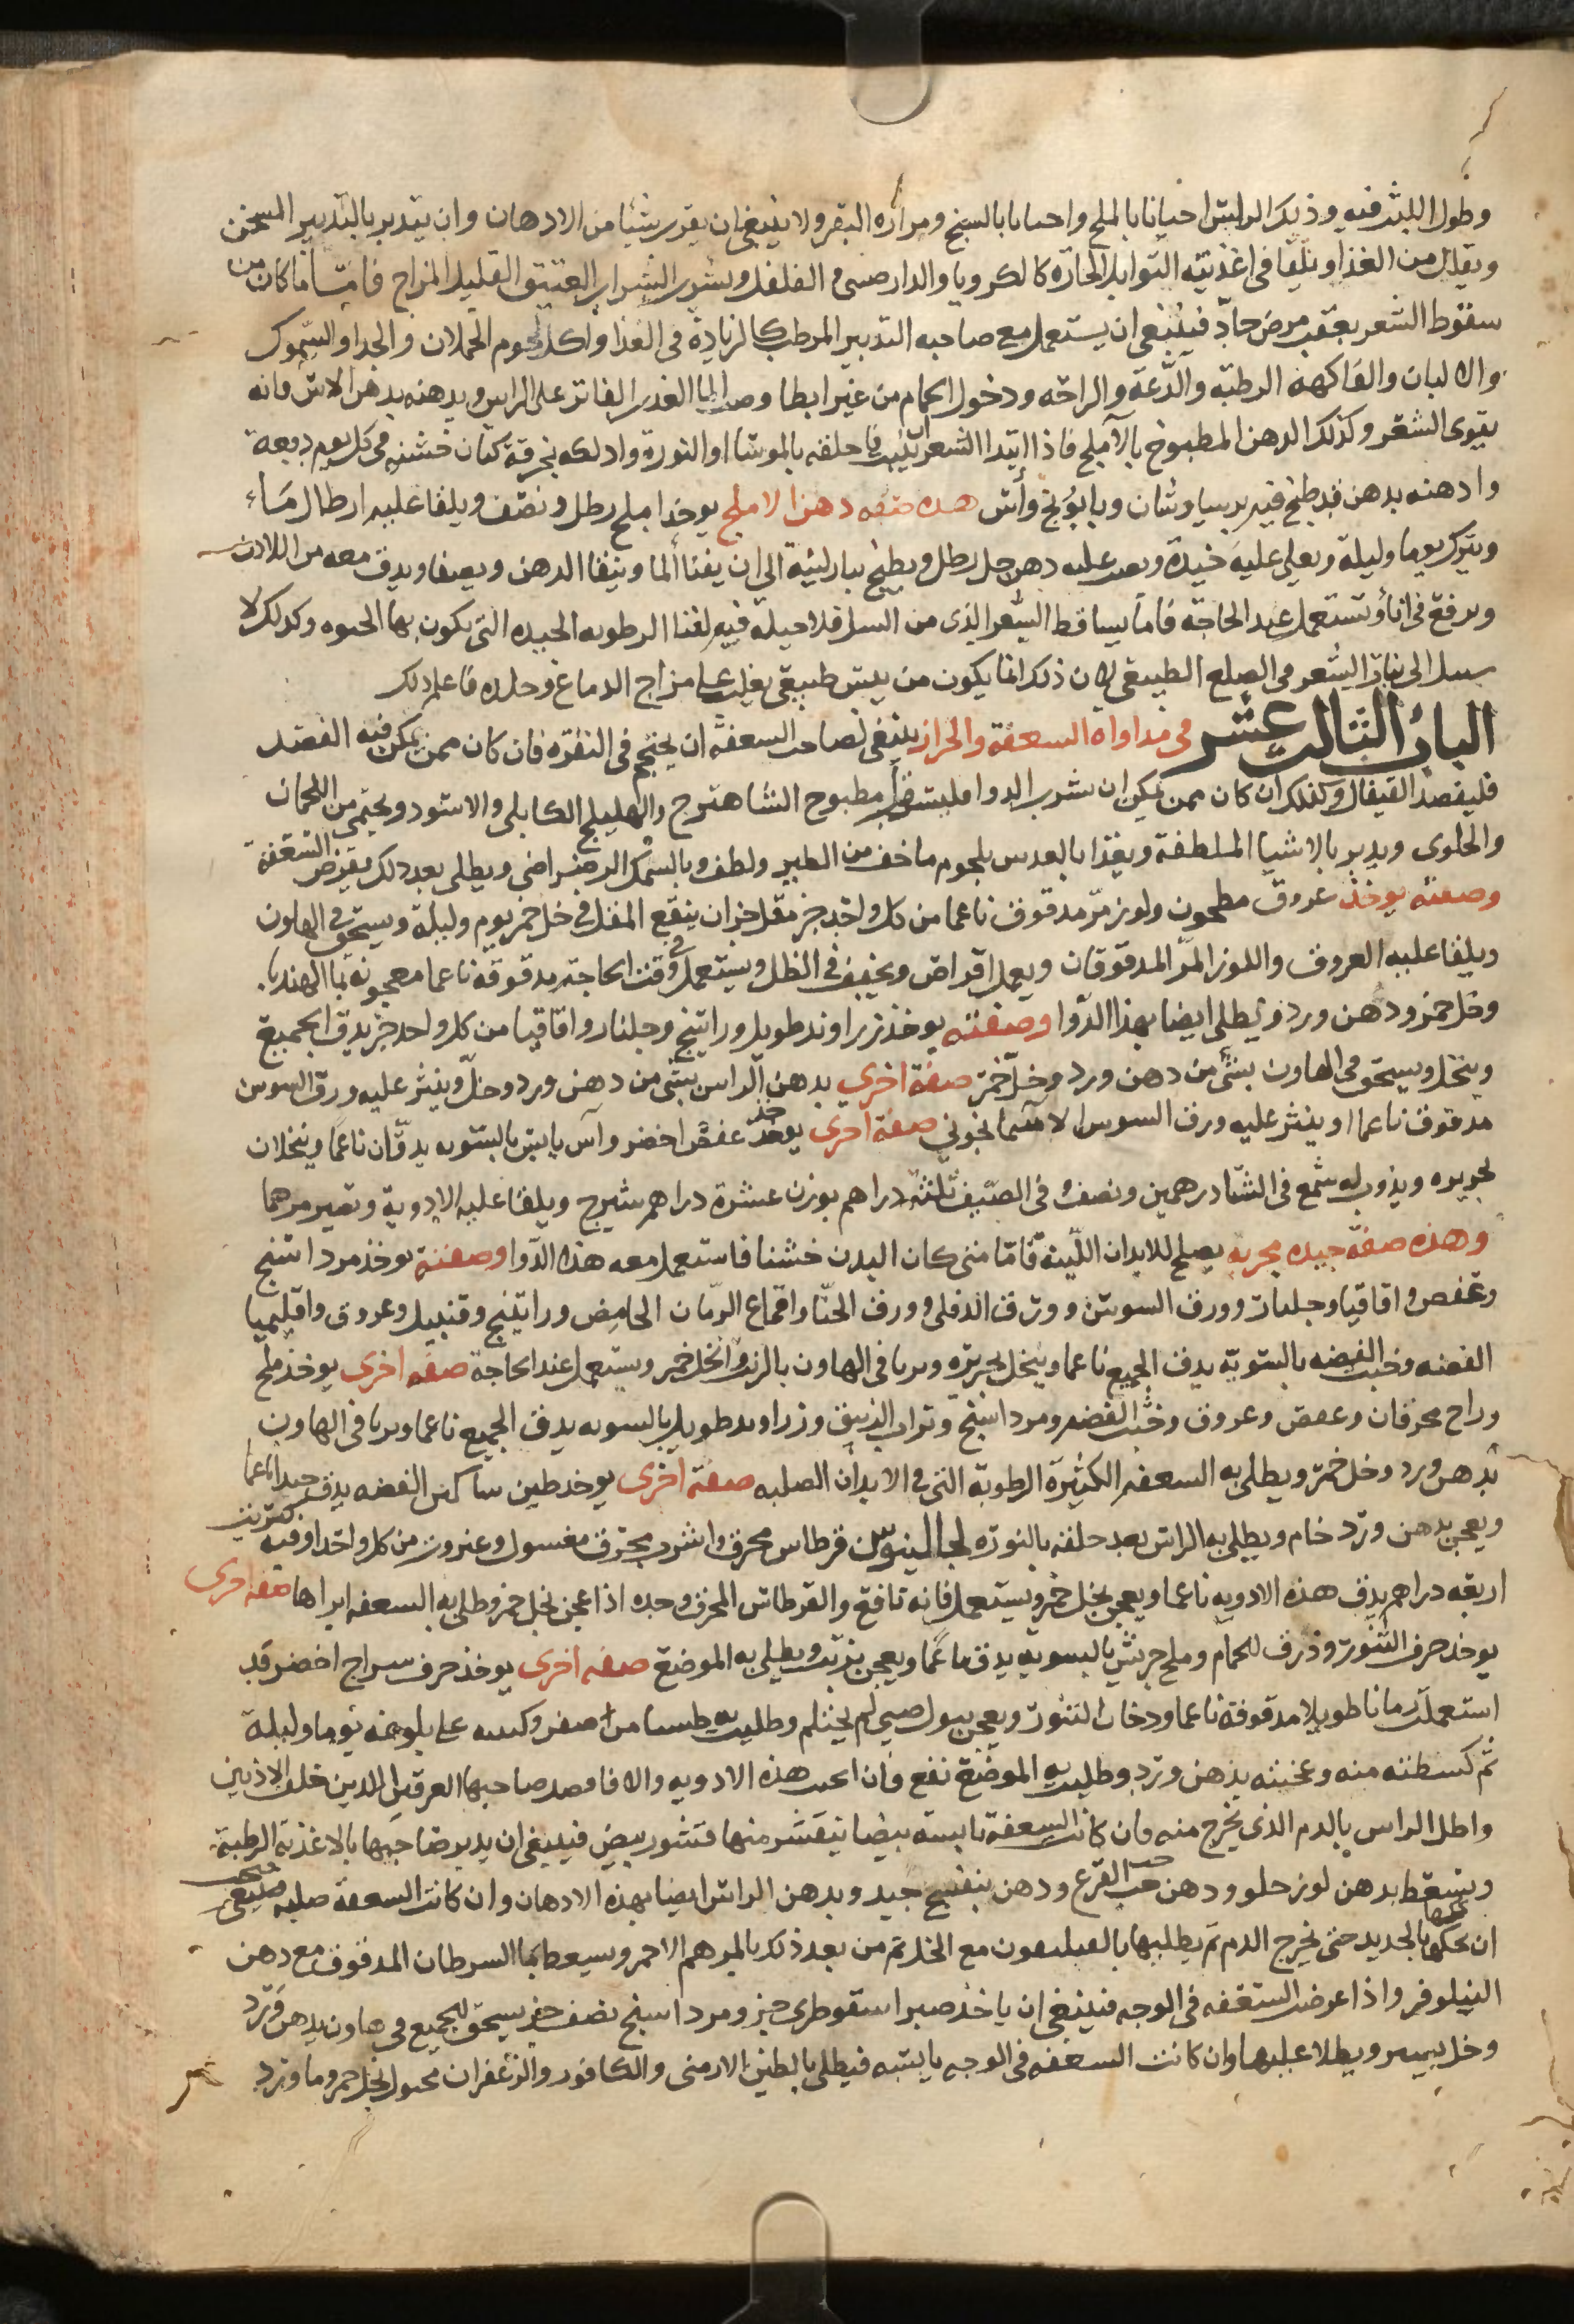 وطول اللبث فيه وذلك الراس احيانا بالملح واحيانا بالشيح ومرارة البقر ولا ينبغي ان يقرب شيئا من الادهان وان يتدبر بالتدبير المسخن
ويقلل من الغذا ويلقا في اغذيته التوابل الحاره كالكرويا والدارصيني والفلفل ويشرب الشراب العتيق القليل المزاج فاما ما كان من
سقوط الشعر بعقب مرض حاد فينبغي ان يستعمل مع صاحبه التدبير المرطب كالزيادة في الغذا واكل لحوم الحملان والجدا والسموك
والالبان والفاكهه الرطبة والدعة والراحه ودخول الحمام من غير ابطا وصب الما العذب الفاتر على الراس ويدهنه بدهن الاس فانه
يقوي الشعر وكذلك الدهن المطبوخ بالآملج فاذا ابتدا الشعر ان ينبت فاحلقه بالموسا او النورة وادلكه بخرقة كتان خشنه في كل يوم دفعة
وادهنه بدهن قد طبخ فيه برسياوشان وبابونج وآس هذه صفه دهن الاملج يوخذ املج رطل ونصف ويلقا عليه ارطال ماء
ويترك يوما وليلة ويغلي عليه جيدة ويصب عليه دهن حل رطل ويطبخ بنار لينة الى ان يفنا الما ويبقا الدهن ويصفا ويدق معه من اللادن
ويرفع في اناء ويستعمل عند الحاجة فاما تساقط الشعر الذي من السل فلا حيلة فيه لفنا الرطوبه الجيده التي يكون بها الحيوه وكذلك لا
سبيل الى نبات الشعر في الصلع الطبيعي لان ذلك انما يكون من يبس طبيعي يغلب على مزاج الدماغ وجلده فاعلم ذلك
الباب الثالث عشر في مداواة السعفة والحزاز ينبغي لصاحب السعفة ان يحتجم في النقرة فان كان ممن يمكن فيه الفصد
فليفصد القيفال وكذلك ان كان ممن يمكن ان يشرب الدوا فليشرب مطبوخ الشاهترج والهليلج الكابلي والاسود ويحتمي من اللحمان
والحلوى ويدبر بالاشيا الملطفة ويغذا بالعدس بلحوم ما خف من الطير ولطف وبالسمك الرضراضي ويطلى بعد ذلك بقرص السعفة
وصفته يوخذ عروق مطحون ولوز مر مدقوق ناعما من كل واحد جز مقل جزان ينقع المقل في خل خمر يوم وليلة ويسحق في الهاون
ويلقا عليه العروق واللوز المر المدقوقان ويعمل اقراص ويجفف في الظل ويستعمل في وقت الحاجة مدقوقة ناعما معجونة بما الهندبا
وخل خمر ودهن ورد ويطلى ايضا بهذا الدوا وصفته يوخذ زراوند طويل وراتينج وجلنار واقاقيا من كل واحد جز يدق الجميع
وينخل ويسحق في الهاون بشي من دهن ورد وخل خمر صفة اخرى يدهن الراس بشي من دهن ورد وخل وينثر عليه ورق السوسن
مدقوق ناعما او ينثر عليه ورق السوسن الاسمانجوني صفة اخرى يوخذ عفص اخضر وآس يابس بالسويه يدقان ناعما وينخلان
بحريره ويذوب له شمع في الشتا درهمين ونصف وفي الصيف ثلثة دراهم بوزن عشرة دراهم شيرج ويلقا عليه الادوية وتصير مرهما
وهذه صفة جيده مجربه يصلح للابدان اللينة فاما متى كان البدن خشنا فاستعمل معه هذا الدوا وصفته يوخذ مرداسنج
وعفص واقاقيا وجلنار وورق السوسن وورق الدفلى وورق الحنا واقماع الرمان الحامض وراتينج وقنبيل وعروق واقليميا
الفضه وخبث الفضه بالسوية يدق الجميع ناعما وينخل بحريره ويربا في الهاون بالزيت والخل خمر ويستعمل عند الحاجة صفه اخرى يوخذ ملح
وزاج محرقان وعفص وعروق وخبث الفضه ومرداسنج وتراب الزيبق وزراوند طويل بالسويه يدق الجميع ناعما ويربا في الهاون
بدهن ورد وخل خمر ويطلى به السعفه الكثيرة الرطوبة التي في الابدان الصلبه صفة اخرى يوخذ طين الفضه يدق جيدا ناعما
ويعجن بدهن ورد خام ويطلى به الراس بعد حلقه بالنوره لجالينوس قرطاس محرق واشرب محرق مغسول وعنزروت من كل واحد اوقيه كبريت
اربعه دراهم يدق هذه الادويه ناعما ويعجن بخل خمر ويستعمل فانه نافع والقرطاس المحرق وحده اذا عجن بخل خمر وطلي به السعفه ابراها صفه اخرى
يوخذ خزف التنور وذرق الحمام وملح جريش بالسويه يدق ناعما ويعجن بزيت ويطلى به الموضع صفه اخرى يوخذ خزف سراج اخضر قد
استعمل زمانا طويلا مدقوقة ناعما ودخان التنور ويعجن ببول صبي لم يحتلم وطليت به طستا من صفر وكببته على بلوعه يوما وليلة
ثم كشطته منه وعجنته بدهن ورد وطليت به الموضع نفع فان انجبت هذه الادويه والا فافصد صاحبها العرقين اللذين خلف الاذنين
واطل الراس بالدم الذي يخرج منه فان كانت السعفة يابسة بيضا يتقشر منها قشور بيض فينبغي ان يدبر صاحبها بالاغذية الرطبة
ويسعط بدهن لوز حلو ودهن حب القرع ودهن بنفسج جيد ويدهن الراس ايضا بهذه الادهان وان كانت السعفة صلبه فينبغي
ان يحكها بالحديد حتى يخرج الدم ثم يطليها بالقيليميون مع الخل ثم من بعد ذلك بالمرهم الاحمر ويسعط بما السرطان المدقوق مع دهن
النيلوفر واذا عرضت السعفه في الوجه فينبغي ان ياخذ صبر اسقوطري جز ومرداسنج نصف جز يسحق الجميع في هاون بدهن ورد
وخل يسير ويطلا عليها وان كانت السعفه في الوجه يابسه فيطلى بالطين الارمني والكافور والزعفران محلول بخل خمر وما ورد